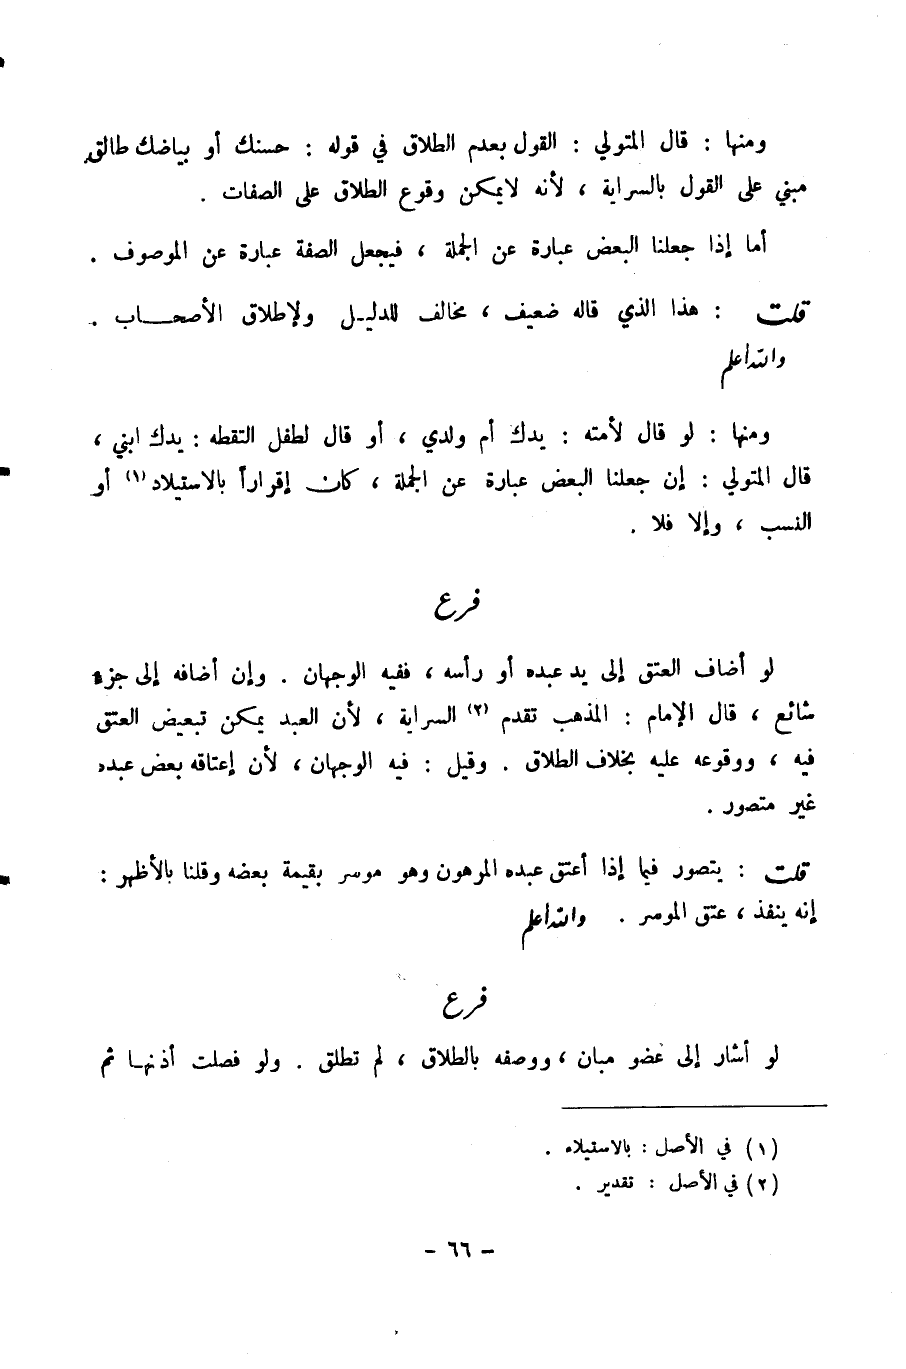 ومنها : قال المتولي : القول بعدم الطلاق في قوله : حسنك أو بياضك طالق
مبني على القول بالسراية ، لأنه لايمكن وقوع الطلاق على الصفات .
أما إذا جعلنا البعض عبارة عن الجملة ، فيجعل الصفة عبارة عن الموصوف .
قلت : هذا الذي قاله ضعيف ، مخالف للدليـل ولإطلاق الأصحـاب .
والله أعلم
ومنها : لو قال لأمته : يدك أم ولدي ، أو قال لطفل التقطه : يدك ابني ،
قال المتولي : إن جعلنا البعض عبارة عن الجملة ، كان إقراراً بالاستيلاد (١) أو
النسب ، وإلا فلا .
فرع
لو أضاف العتق إلى يد عبده أو رأسه ، ففيه الوجهان . وإن أضافه إلى جزء
شائع ، قال الإمام : المذهب تقدم (٢) السراية ، لأن العبد يمكن تبعيض العتق
فيه ، ووقوعه عليه بخلاف الطلاق . وقيل : فيه الوجهان ، لأن إعتاقه بعض عبده
غير متصور .
قلت : يتصور فيما إذا أعتق عبده المرهون وهو موسر بقيمة بعضه وقلنا بالأظهر :
إنه ينفذ ، عتق الموسر . والله أعلم
فرع
لو أشار إلى عضو مبان ، ووصفه بالطلاق ، لم تطلق . ولو فصلت أذنهـا ثم
(١) في الأصل : بالاستيلاء .
(٢) في الأصل : تقدير .
- ٦٦ -